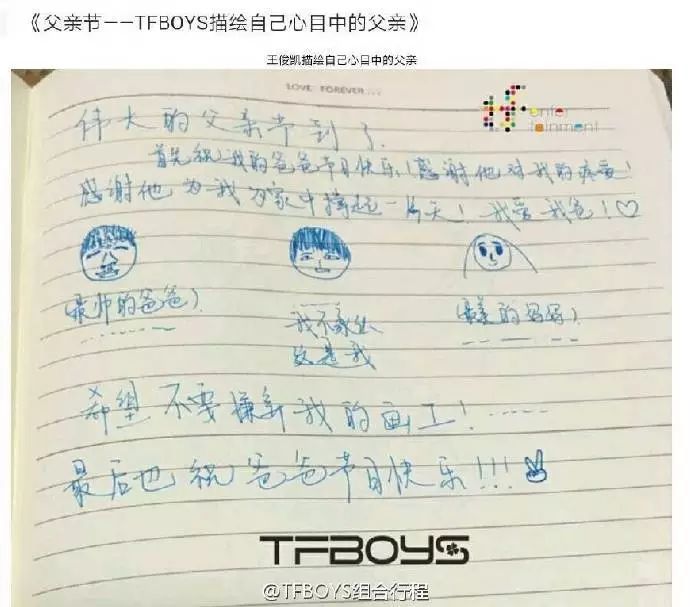 《父亲节——TFBOYS描绘自己心目中的父亲》
王俊凯描绘自己心目中的父亲
LOVE FOREVER...
Enter
tainment
伟大的父亲节到了.
首先祝我的爸爸节日快乐!感谢他对我的疼爱!
感谢他为我为家中撑起一片天!我爱我爸!♡
(最帅的爸爸)
我不敢丛
这是我
(最美的妈妈)
希望不要嫌弃我的画工!
最后也祝爸爸节日快乐!!!
TFBOYS
@TFBOYS组合行程